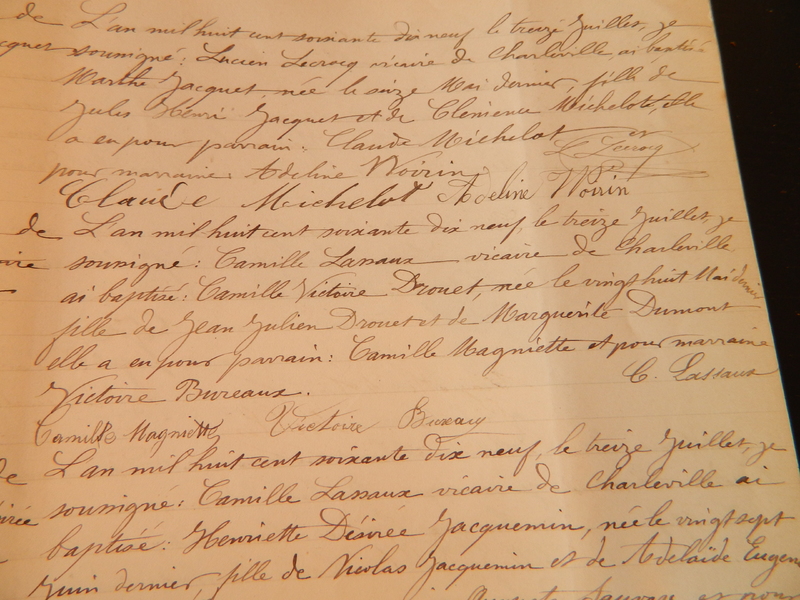 de L'an mil huit cent soixante dix neuf le treize Juillet, je
soussigné: Lucien Lecrocq vicaire de Charleville, ai baptisé
Marthe Jacquet, née le seize Mai dernier, fille de
Jules Henri Jacquet et de Clémence Michelot, elle
a eu pour parrain: Claude Michelot et
L. Lecrocq
pour marraine: Adeline Woirin
Claude Michelot Adeline Woirin
de L'an mil huit cent soixante dix neuf, le treize Juillet, je
soussigné: Camille Lassaux vicaire de Charleville
ai baptisé: Camille Victoire Drouet, née le vingt huit Mai dernier
fille de Jean Julien Drouet et de Marguerite Dumont
elle a eu pour parrain: Camille Magniette et pour marraine
C. Lassaux
Victoire Bureaux.
Camille Magniette Victoire Bureaux
de L'an mil huit cent soixante dix neuf, le treize Juillet, je
soussigné: Camille Lassaux vicaire de Charleville ai
baptisé: Henriette Désirée Jacquemin, née le vingt sept
Juin dernier, fille de Nicolas Jacquemin et de Adélaïde Eugen
Sauvage et pour